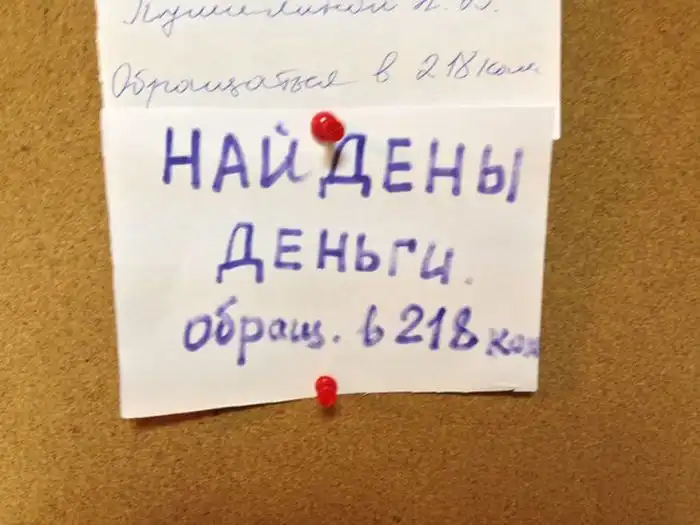 Обращаться в 218 ком
НАЙДЕНЫ
ДЕНЬГИ.
обращ. в 218 ком